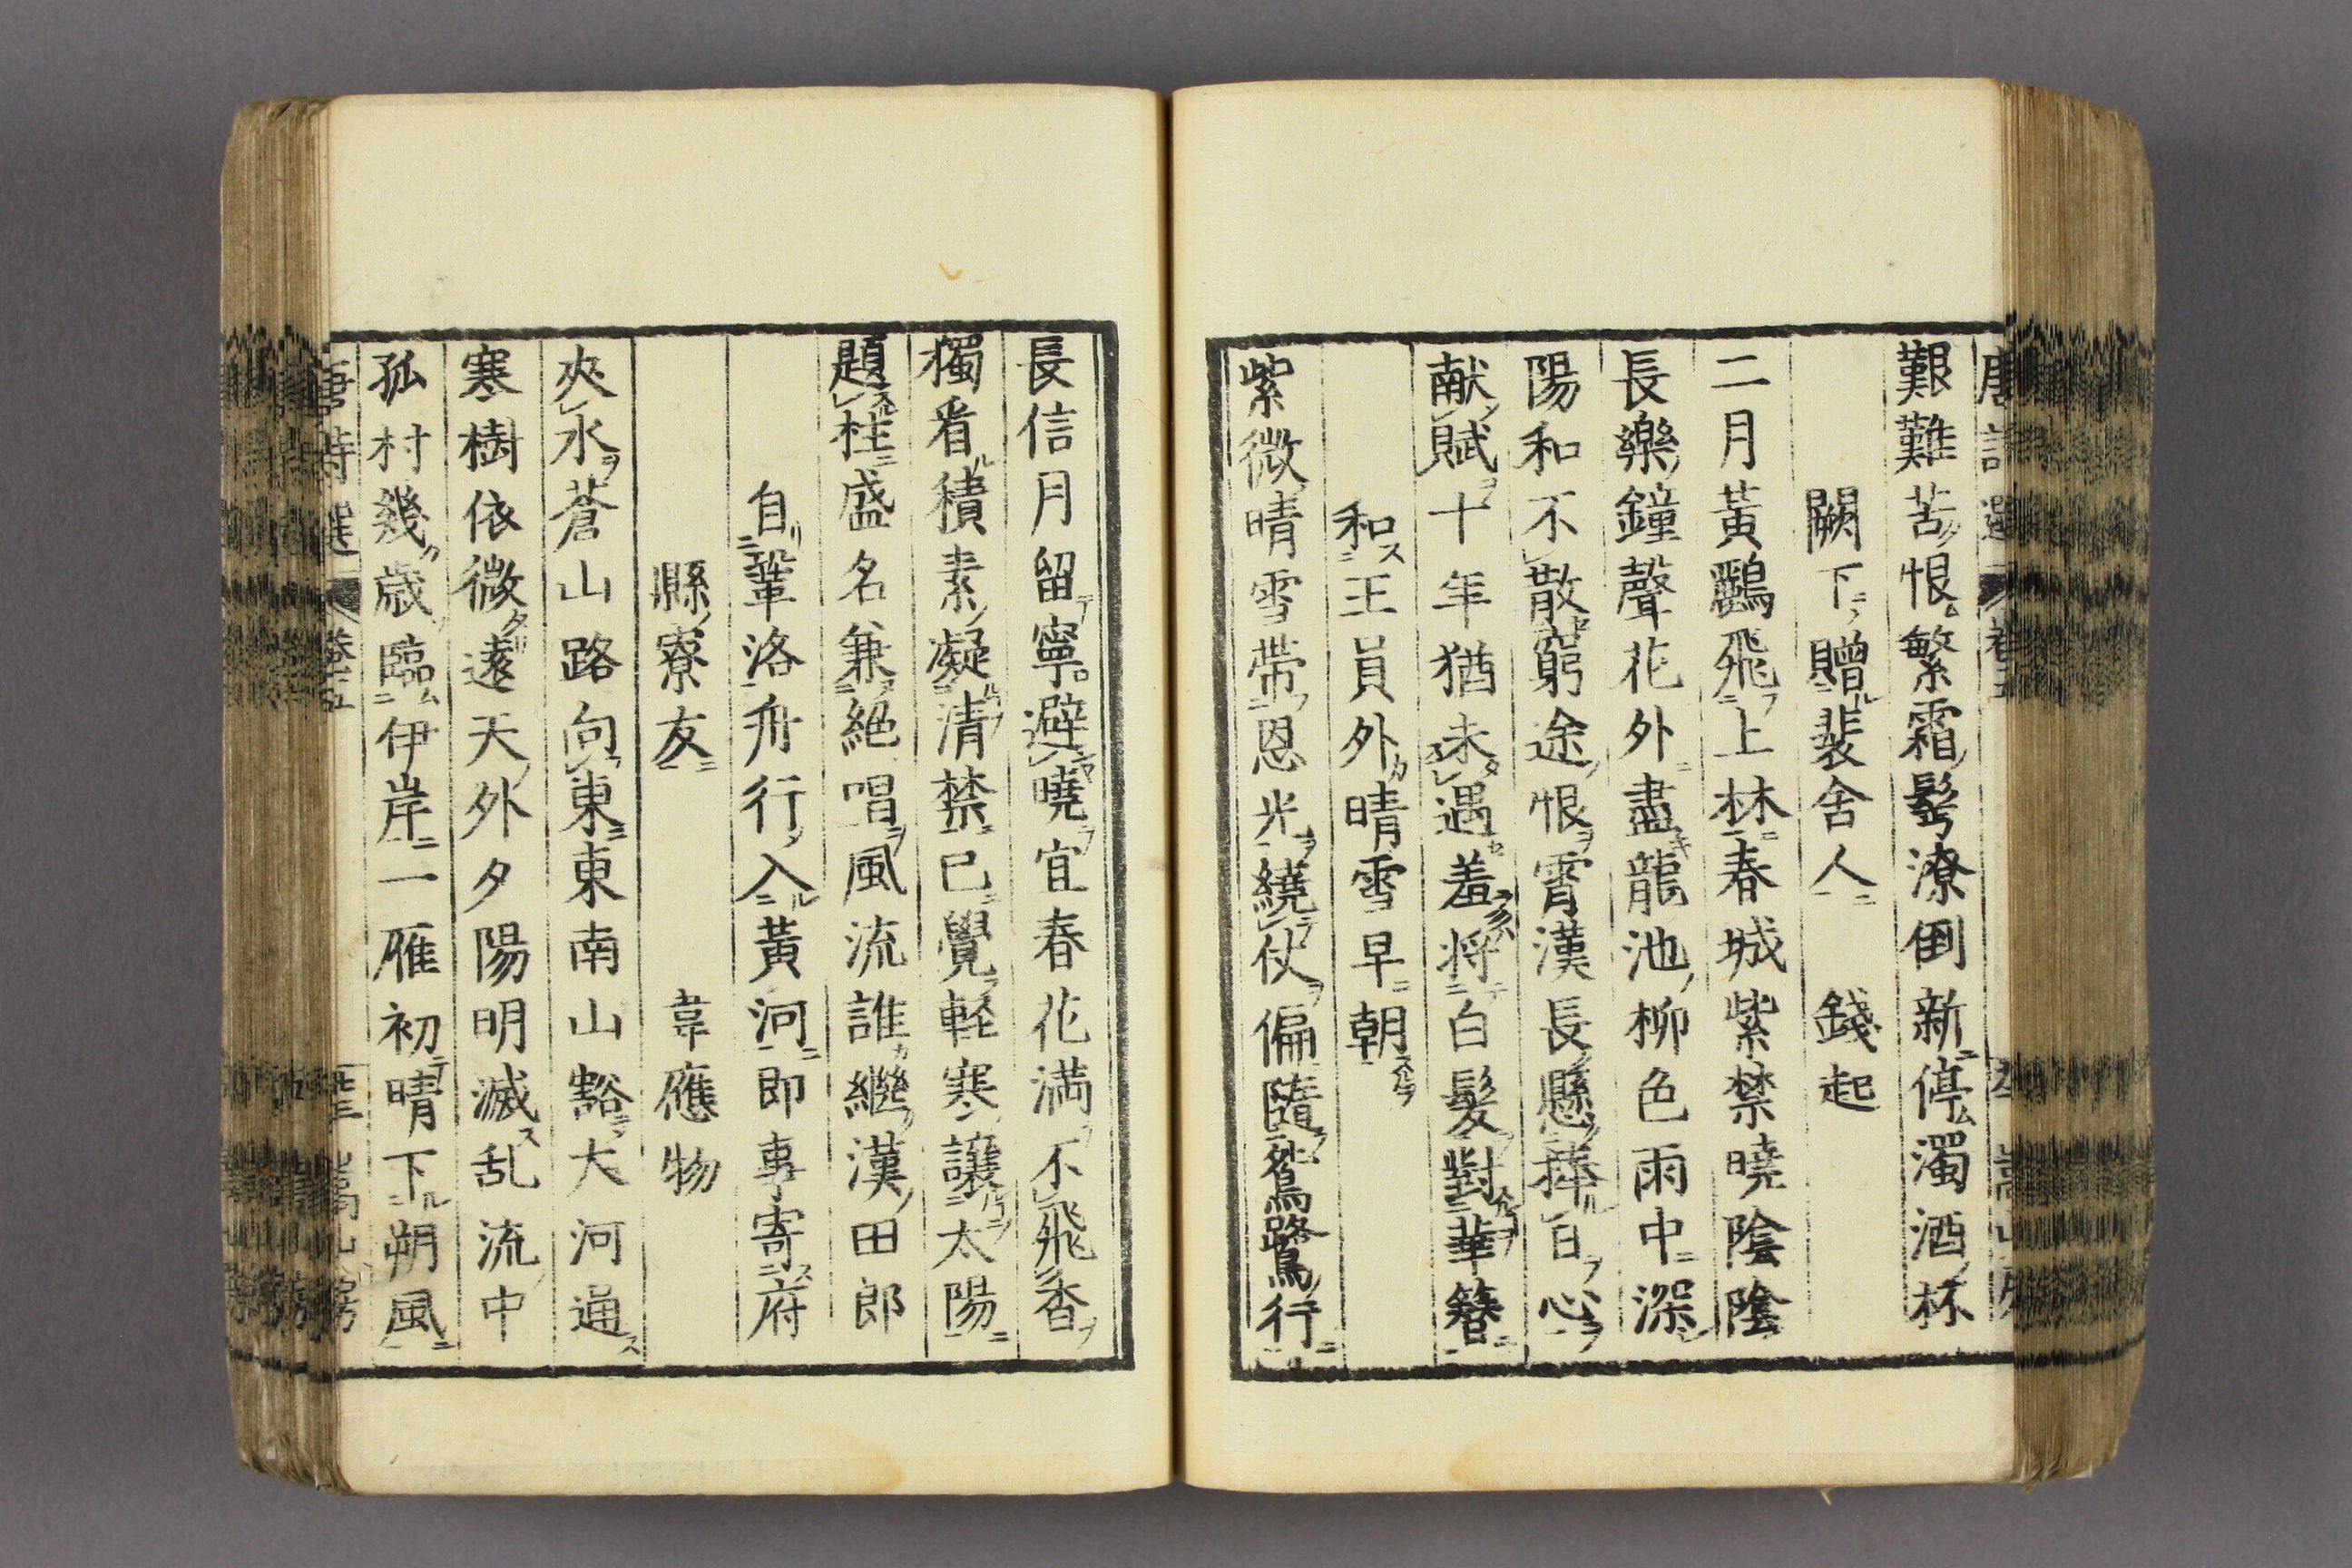 艱難苦恨繁霜鬢潦倒新停濁酒杯
闕下贈裴舍人 錢起
二月黃鸝飛上林春城紫禁曉陰陰
長樂鐘聲花外盡龍池柳色雨中深
陽和不散窮途恨霄漢長懸捧日心
献賦十年猶未遇羞將白髮對華簪
和王員外晴雪早朝
紫微晴雪帶恩光繞仗偏隨鴛鷺行
長信月留寧避曉宜春花満不飛香
獨看積素凝清禁已覺軽寒讓太陽
題柱盛名兼絕唱風流誰繼漢田郎
自鞏洛舟行入黃河即事寄府
縣寮友 韋應物
夾水蒼山路向東東南山豁大河通
寒樹依微遠天外夕陽明滅乱流中
孤村幾歳臨伊岸一雁初晴下朔風
唐詩選 卷五